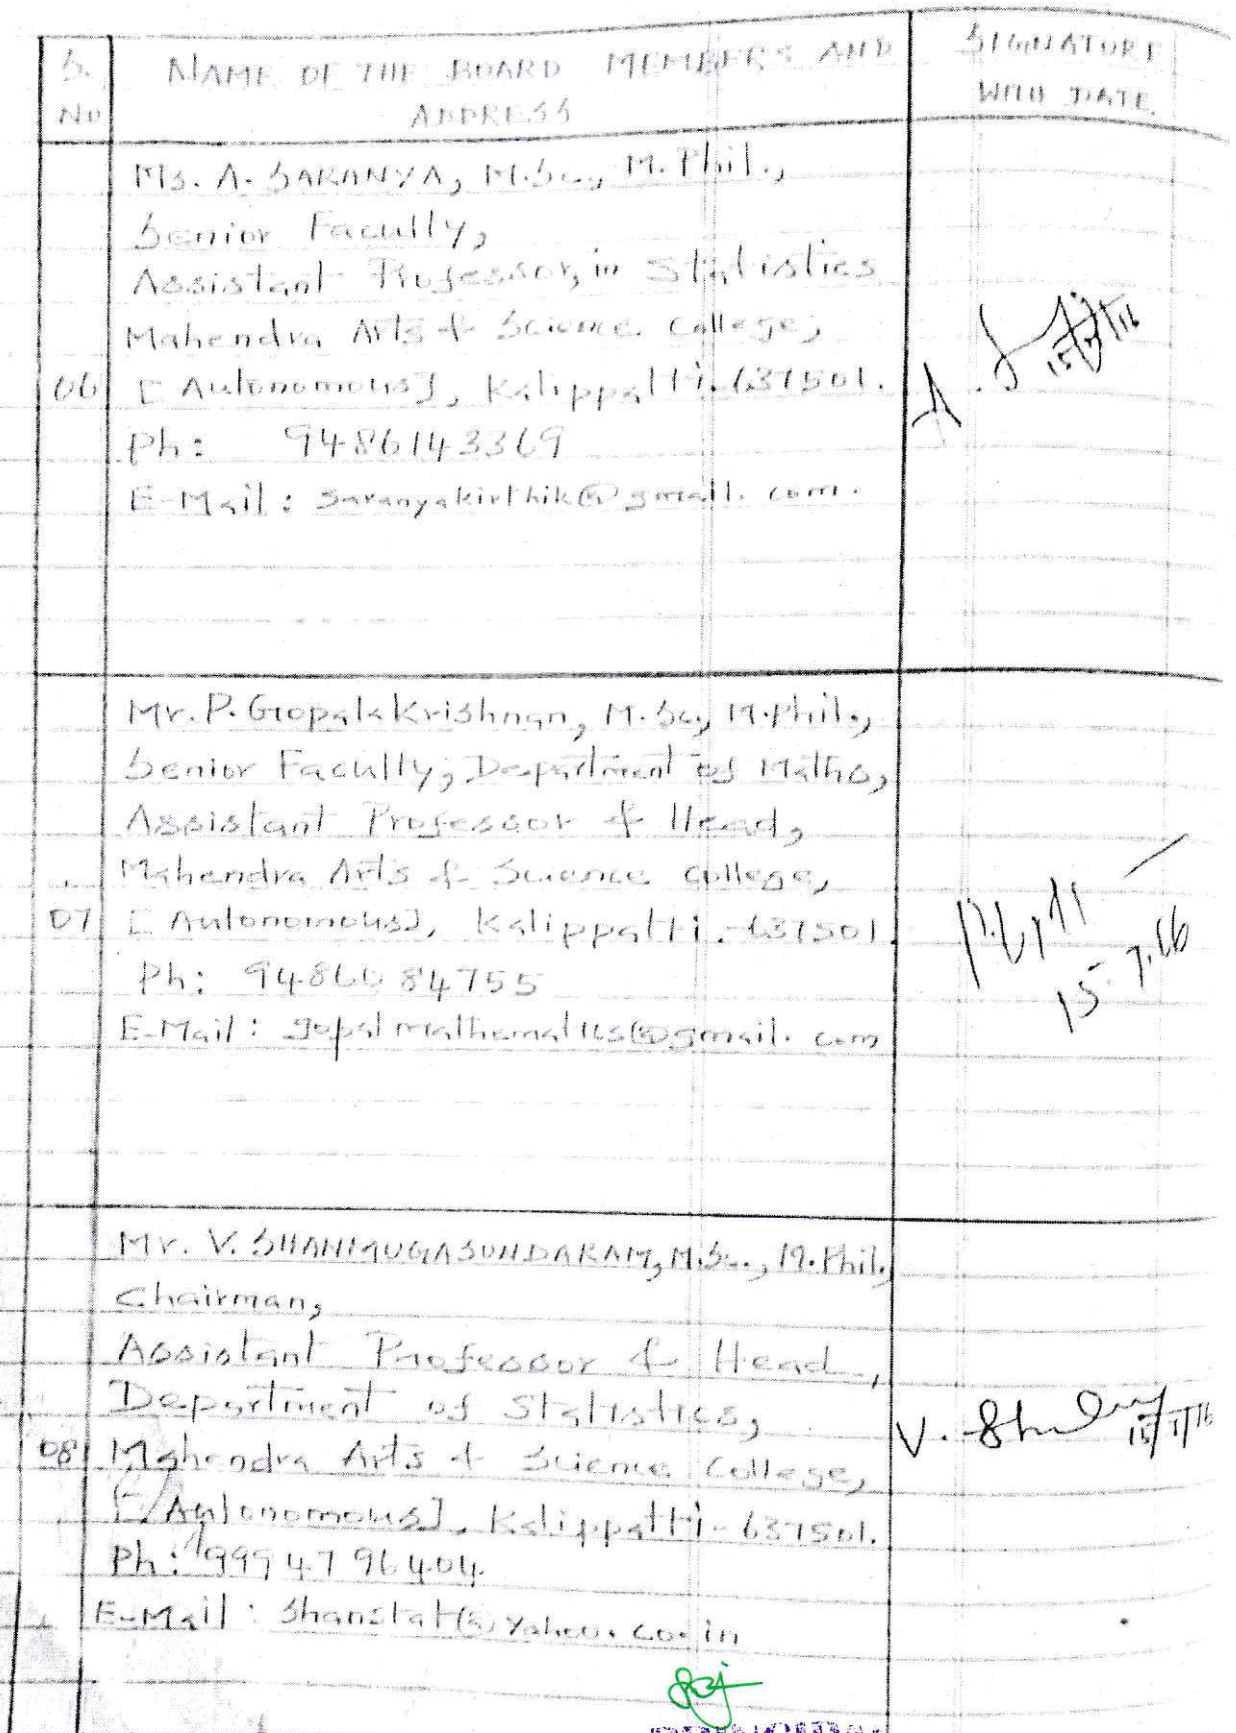 S. No
NAME OF THE BOARD MEMBERS AND ADDRESS
SIGNATURE WITH DATE
Ms. A. SARANYA, M.Sc., M.Phil.,
Senior Faculty,
Assistant Professor, in Statistics
Mahendra Arts & Science College,
06 [Autonomous], Kalippatti-637501.
Ph: 9486143369
E-Mail: saranyakirthik@gmail.com.
A. 15/7/16
Mr. P. Gopalakrishnan, M.Sc, M.Phil.,
Senior Faculty, Department of Maths,
Assistant Professor & Head,
Mahendra Arts & Science College,
07 [Autonomous], Kalippatti.-637501.
Ph: 9486084755
E-Mail: gopalmathematics@gmail.com
15-7-16
Mr. V. SHANMUGASUNDARAM, M.Sc., M.Phil,
Chairman,
Assistant Professor & Head,
Department of Statistics,
08 Mahendra Arts & Science College,
[Autonomous], Kalippatti-637501.
Ph: 9994796404
E-Mail: Shanstat@yahoo.co.in
V. 15/7/16